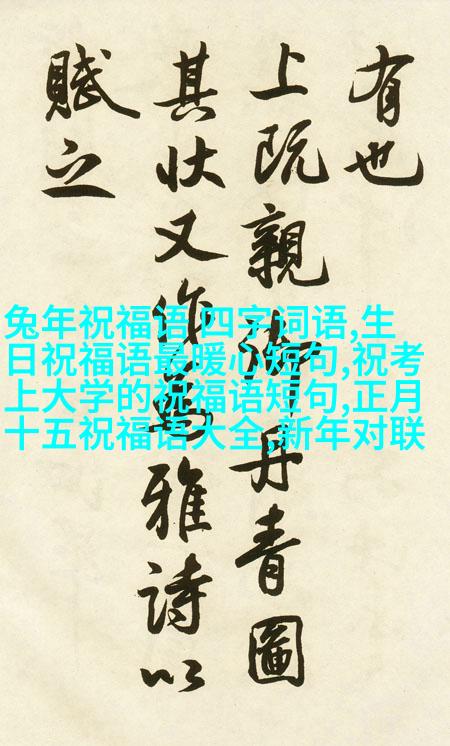 有也
上既親御丹青圖
其狀又作為雅詩以
賦之
兔年祝福语 四字词语,生
日祝福语最暖心短句,祝考
上大学的祝福语短句,正月
十五祝福语大全,新年对联